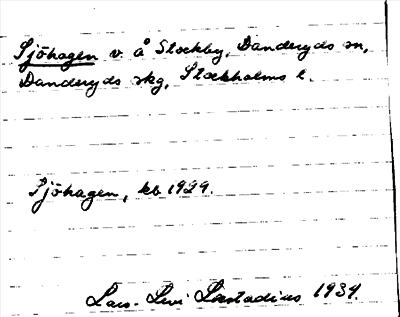 Sjöhagen v. å Stockby, Danderyds sn,
Danderyds skg, Stockholms l.
Sjöhagen, kb 1929.
Lars-Levi Læstadius 1934.